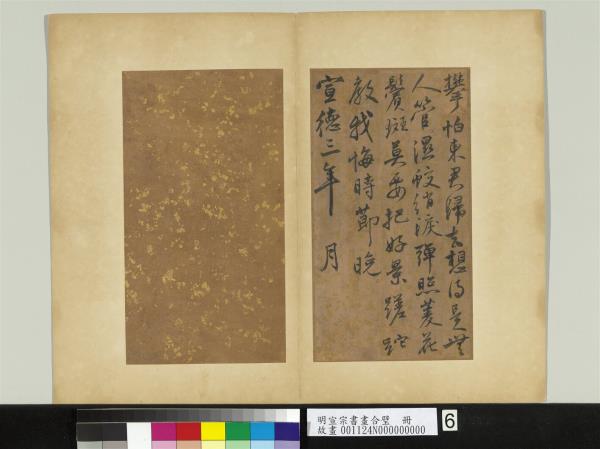 攀怕東君歸去想得是無
人管濕鮫綃淚彈照菱花
鬢斑莫要把好景蹉跎
教我悔時節晚
宣德三年 月
明宣宗書畫合璧 冊
故畫 001124N000000000
6